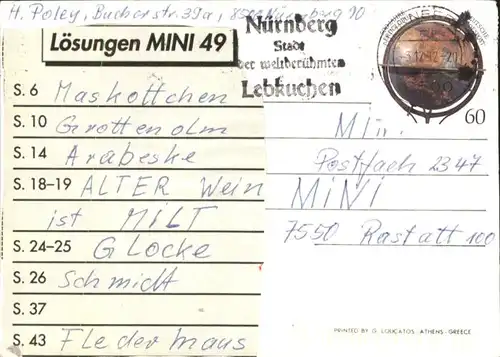 H. Poley, Bucherstr. 39a, 8500 Nürnberg 90
Lösungen MINI 49
Nürnberg
Stadt
der weltberühmten
Lebkuchen
60
S. 6 Maskottchen
S. 10 Grottenolm
S. 14 Arabeske
S. 18–19 ALTER Wein
ist MILT
S. 24–25 GLOCKE
S. 26 Schmidt
S. 37
S. 43 Fledermaus
Postfach 2347
MiNi
7550 Rastatt 100
PRINTED BY G. LOUCATOS, ATHENS, GREECE